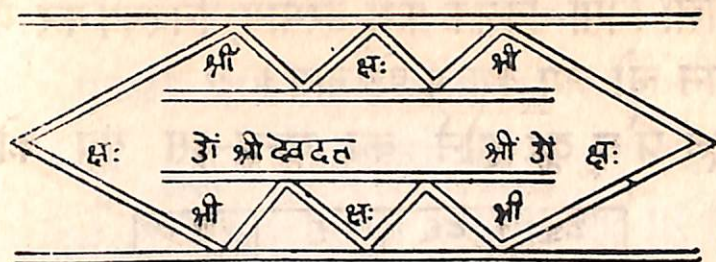 श्रीं क्षः श्रीं
क्षः ॐ श्री देवदत्त श्रीं ॐ क्षः
श्री क्षः श्री